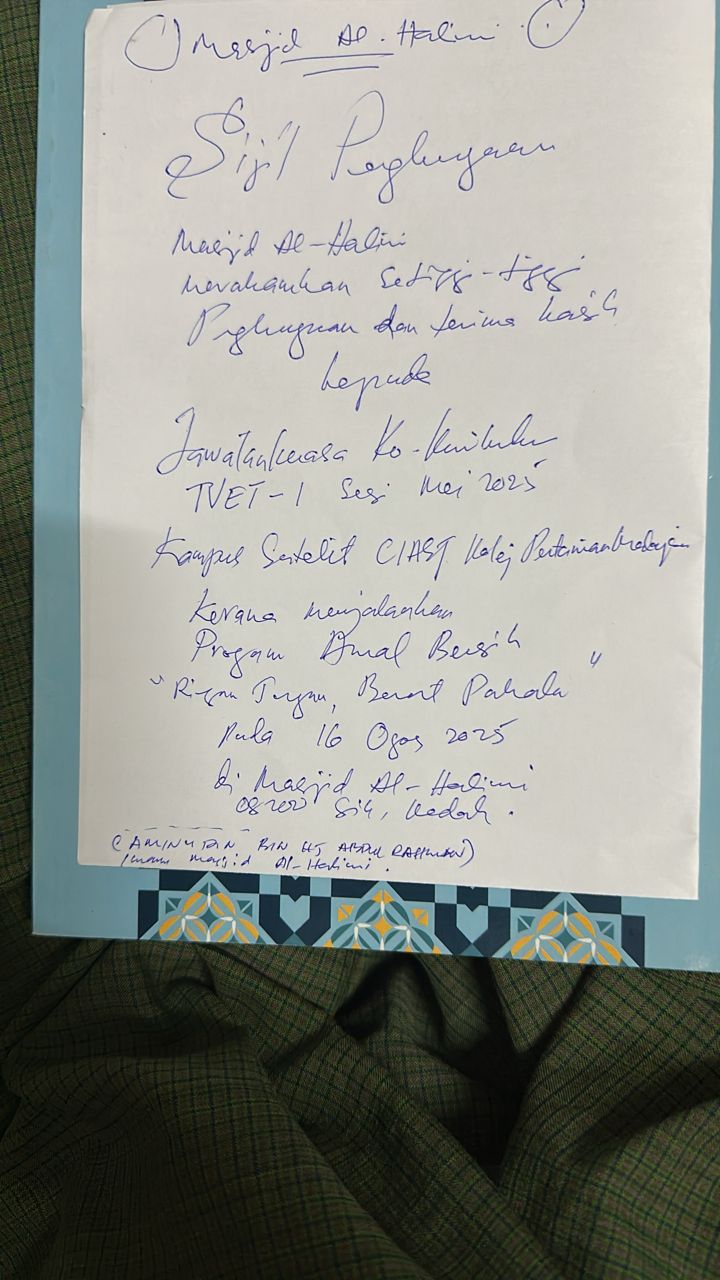 Masjid Al-Halimi
Sijil Penghargaan
Masjid Al-Halimi
merakamkan setinggi-tinggi
Penghargaan dan terima kasih
kepada
Jawatankuasa Ko-Kurikulum
TVET-1 Sesi Mei 2025
Kampus Satelit CIAST Kolej Pertanian
Kerana menjalankan
Program Amal Bersih
"Ringan Tangan, Berat Pahala"
pada 16 Ogos 2025
di Masjid Al-Halimi
08200 Sik, Kedah.
(AMINUDIN BIN HJ ABDUL RAHMAN)
imam masjid Al-Halimi.